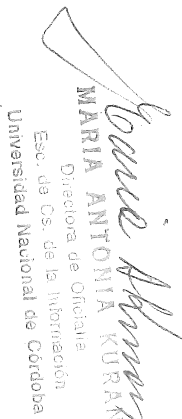 MARIA ANTONIA KURAK
Directora de Oficialia
Esc. de Cs. de la Información
Universidad Nacional de Córdoba